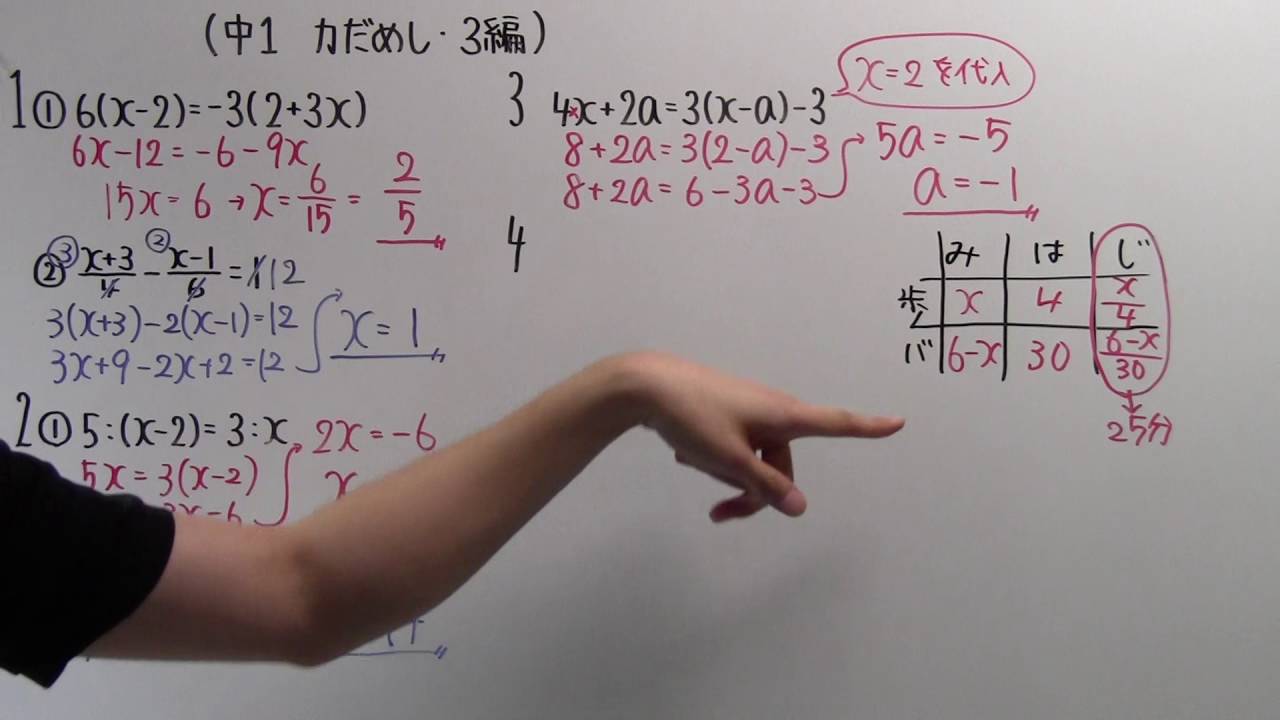 (中1 力だめし・3編)
1 ① 6(x-2)=-3(2+3x)
6x-12=-6-9x
15x=6→x=6/15=2/5
② ③ x+3/4 - ② x-1/6 = 1 12
3(x+3)-2(x-1)=12
3x+9-2x+2=12
x=1
2 ① 5:(x-2)=3:x
5x=3(x-2)
3x-6
2x=-6
x
3 4x+2a=3(x-a)-3
x=2を代入
8+2a=3(2-a)-3
8+2a=6-3a-3
5a=-5
a=-1
4
み は じ
歩 x 4 x/4
バ 6-x 30 6-x/30
25分